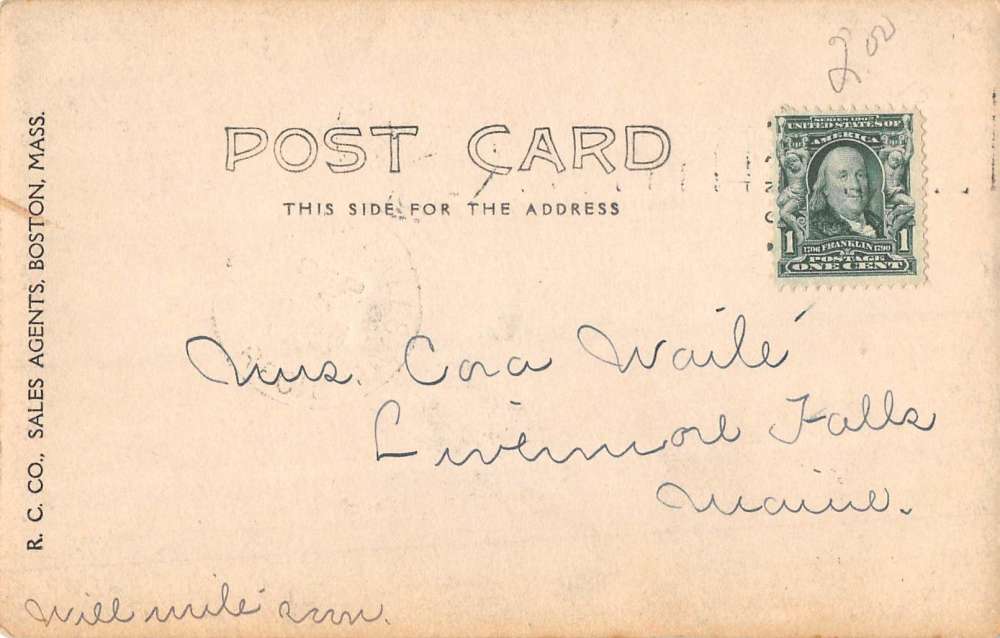 2.00
SERIES 1902
UNITED STATES OF
AMERICA
1 1706 FRANKLIN 1790 1
POSTAGE
ONE CENT
POST CARD
THIS SIDE FOR THE ADDRESS
R. C. CO., SALES AGENTS, BOSTON, MASS.
Mrs. Cora Waite
Livermore Falls
Maine.
Will write soon.